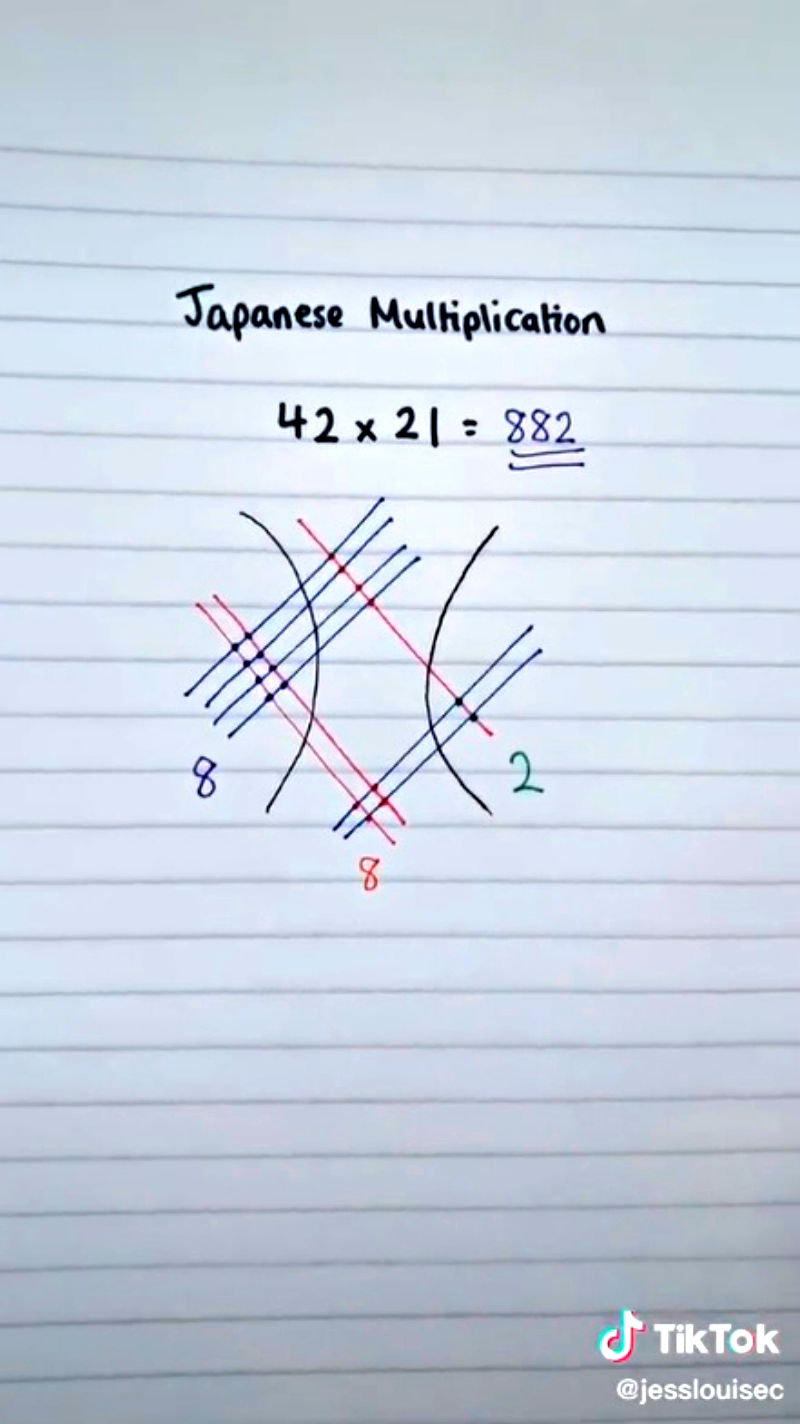 Japanese Multiplication
42 x 21 = 882
8
2
8
TikTok
@jesslouisec